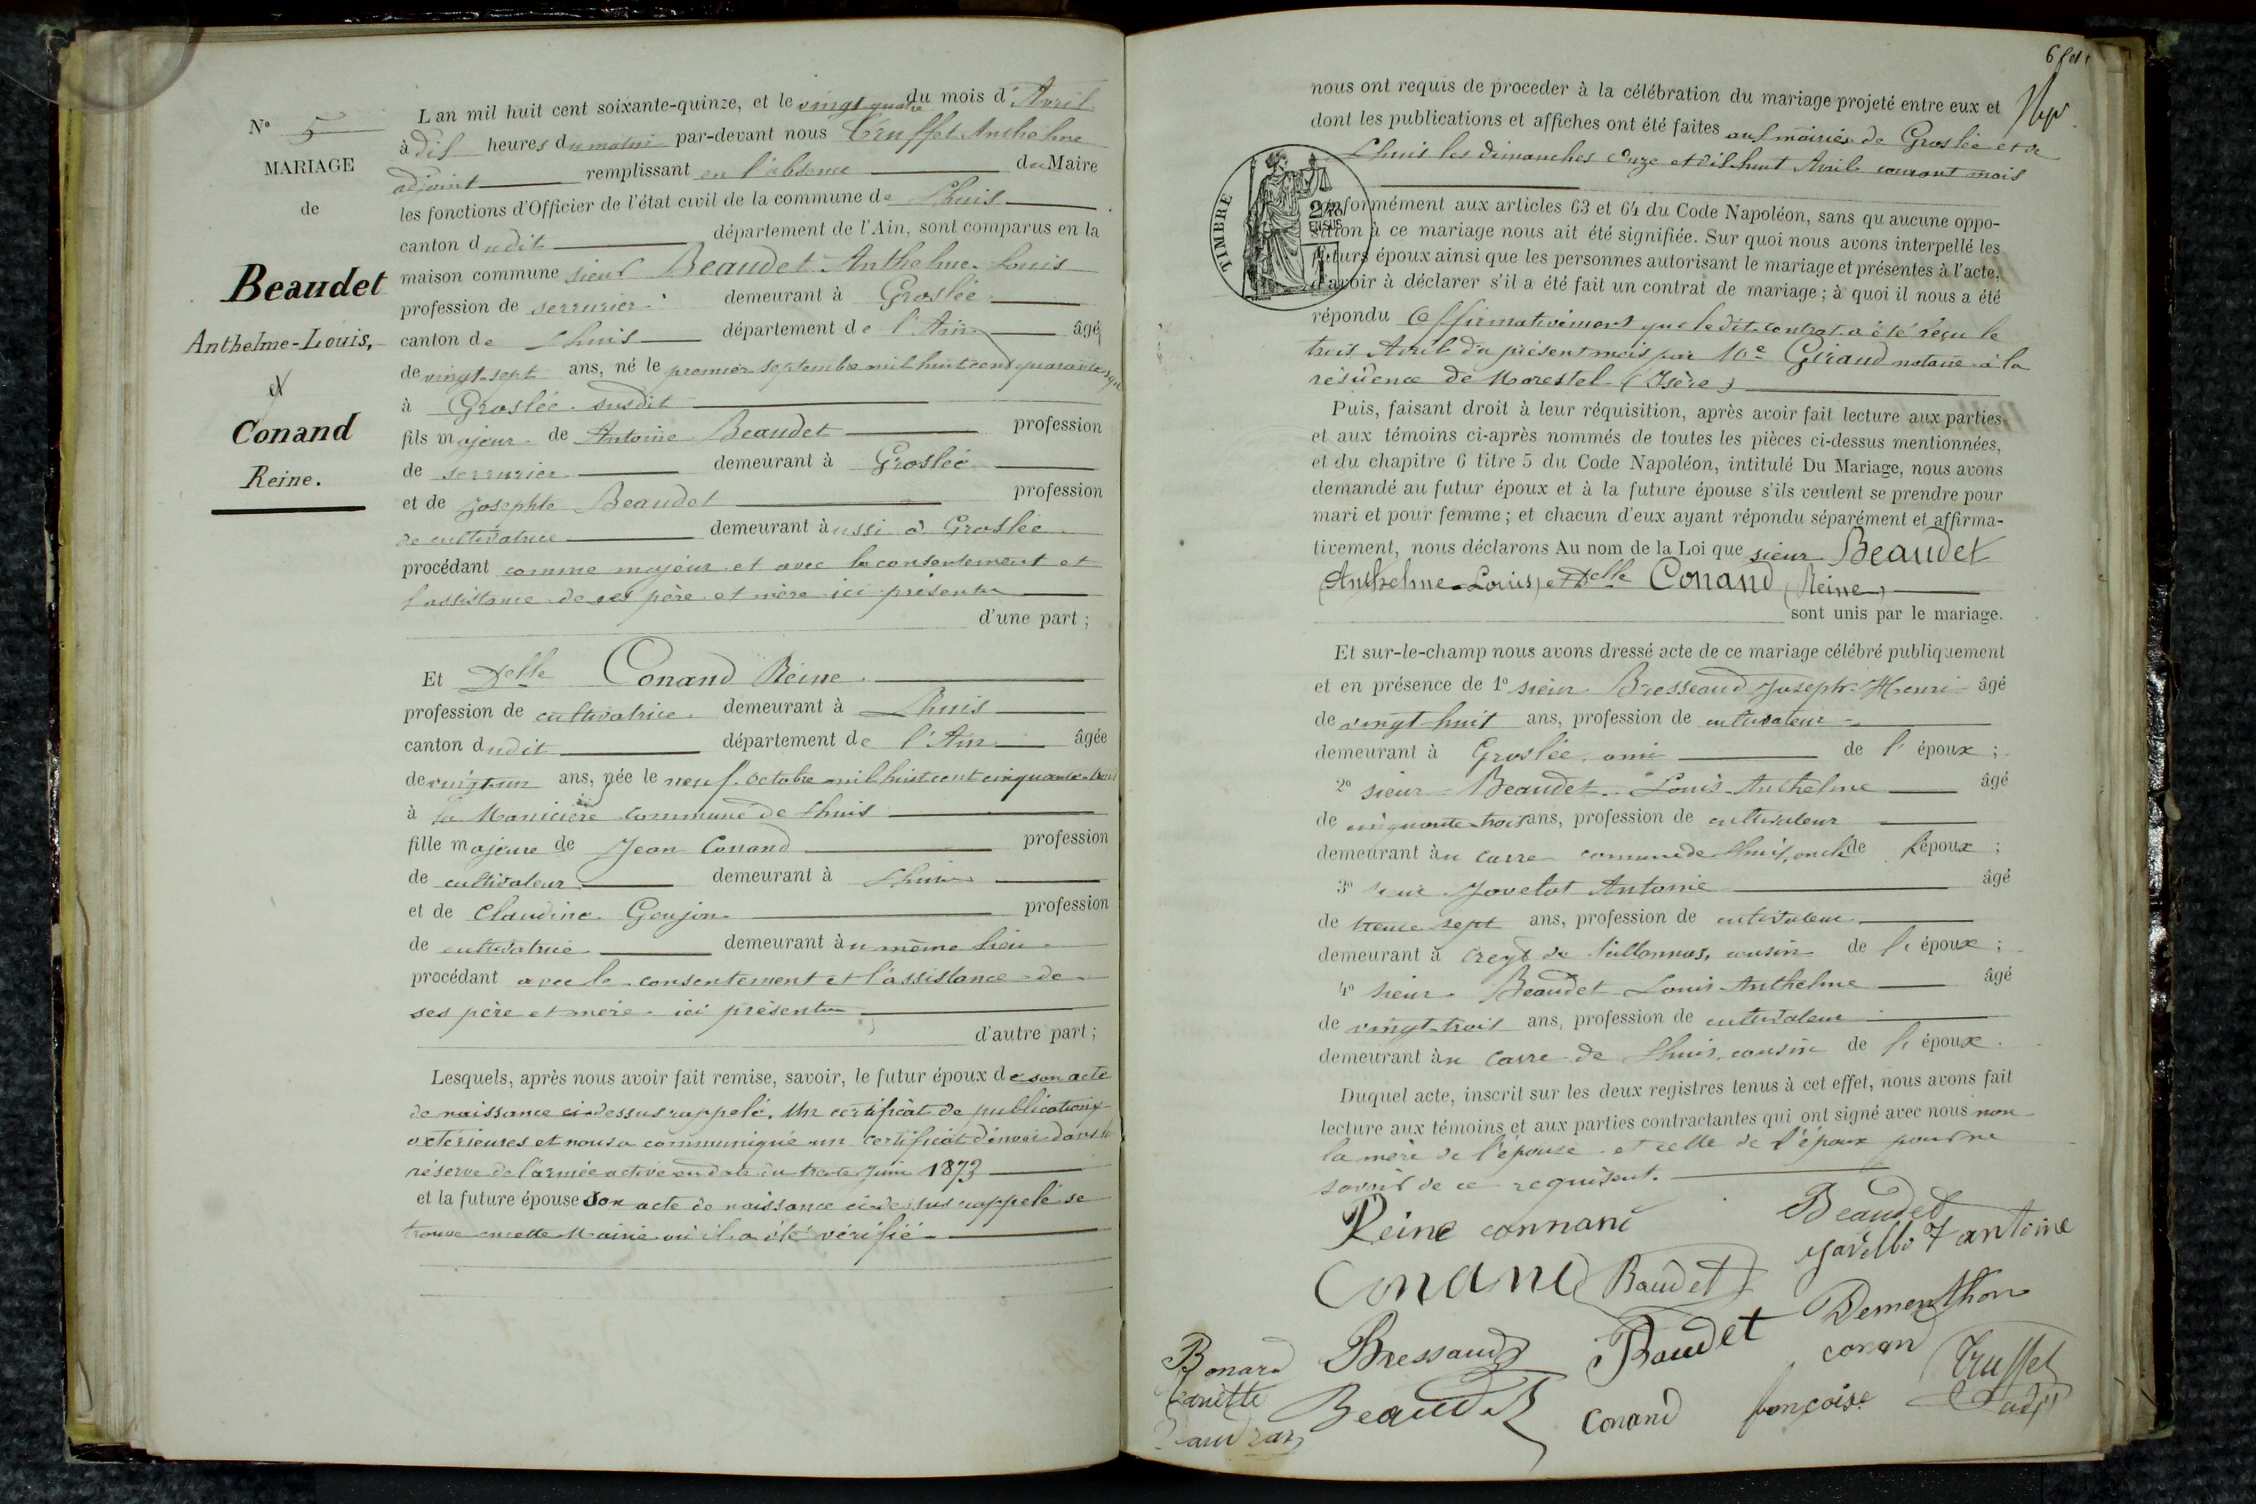 N° 5
MARIAGE
de
Beaudet
Anthelme-Louis,
et
Conand
Reine.
L'an mil huit cent soixante-quinze, et le vingt quatre du mois d'Avril
à dix heures du matin par-devant nous Truffet Anthelme
adjoint remplissant en l'absence du Maire
les fonctions d'Officier de l'état civil de la commune de Lhuis
canton dudit département de l'Ain, sont comparus en la
maison commune sieur Beaudet Anthelme-Louis
profession de serrurier demeurant à Groslée
canton de Lhuis département de l'Ain âgé
de vingt-sept ans, né le premier septembre mil huit cent quarante sept
à Groslée susdit
fils majeur de Antoine Beaudet profession
de serrurier demeurant à Groslée
et de Josephte Beaudet profession
de cultivatrice demeurant aussi à Groslée
procédant comme majeur et avec le consentement et
l'assistance de ses père et mère ici présents
d'une part ;
Et Delle Conand Reine
profession de cultivatrice demeurant à Lhuis
canton dudit département de l'Ain âgée
de vingt-un ans, née le neuf octobre mil huit cent cinquante-trois
à la Manicière commune de Lhuis
fille majeure de Jean Conand profession
de cultivateur demeurant à Lhuis
et de Claudine Goujon profession
de cultivatrice demeurant au même lieu
procédant avec le consentement et l'assistance de
ses père et mère ici présents
d'autre part ;
Lesquels, après nous avoir fait remise, savoir, le futur époux de son acte
de naissance ci-dessus rappelé. Un certificat de publications
extérieures et nous a communiqué un certificat d'envoi dans la
réserve de l'armée active en date du trente Juin 1873
et la future épouse son acte de naissance ci-dessus rappelé se
trouve en cette Mairie où il a été vérifié
nous ont requis de proceder à la célébration du mariage projeté entre eux et
dont les publications et affiches ont été faites aux mairies de Groslée et de
Lhuis les dimanches Onze et dix-huit Avril courant mois
TIMBRE
conformément aux articles 63 et 64 du Code Napoléon, sans qu'aucune oppo-
sition à ce mariage nous ait été signifiée. Sur quoi nous avons interpellé les
futurs époux ainsi que les personnes autorisant le mariage et présentes à l'acte,
d'avoir à déclarer s'il a été fait un contrat de mariage ; à quoi il nous a été
répondu Affirmativement que ledit contrat a été reçu le
trois Avril du présent mois par Me Giraud notaire à la
résidence de Morestel (Isère)
Puis, faisant droit à leur réquisition, après avoir fait lecture aux parties
et aux témoins ci-après nommés de toutes les pièces ci-dessus mentionnées,
et du chapitre 6 titre 5 du Code Napoléon, intitulé Du Mariage, nous avons
demandé au futur époux et à la future épouse s'ils veulent se prendre pour
mari et pour femme ; et chacun d'eux ayant répondu séparément et affirma-
tivement, nous déclarons Au nom de la Loi que sieur Beaudet
(Anthelme-Louis) et Delle Conand (Reine)
sont unis par le mariage.
Et sur-le-champ nous avons dressé acte de ce mariage célébré publiquement
et en présence de 1° sieur Bresseaud Joseph-Henri âgé
de vingt-huit ans, profession de cultivateur
demeurant à Groslée, ami de l'époux ;
2° sieur Beaudet Louis-Anthelme âgé
de cinquante-trois ans, profession de cultivateur
demeurant au Carre commune de Lhuis, oncle de l'époux ;
3° sieur Jovelot Antoine âgé
de trente sept ans, profession de cultivateur
demeurant à Creys, cousin de l'époux ;
4° sieur Beaudet Louis-Anthelme âgé
de vingt-trois ans, profession de cultivateur
demeurant au Carre de Lhuis, cousin de l'époux.
Duquel acte, inscrit sur les deux registres tenus à cet effet, nous avons fait
lecture aux témoins et aux parties contractantes qui ont signé avec nous non
la mère de l'épouse et celle de l'époux pour ne
savoir de ce requises.
Reine connand
Beaudet
antoine
Conand
Baudet
Bressaud
Baudet
Dementhon
Bonard
conan
Truffet
Beaudet
Conand
françoise
adjt